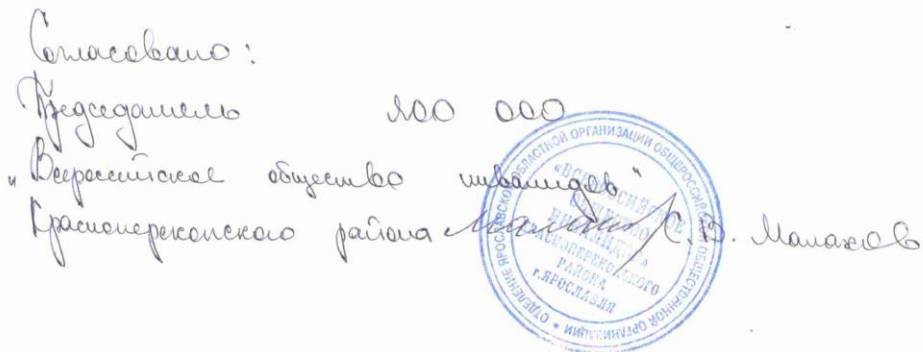 Согласовано:
Председатель ЯОО ООО
"Всероссийское общество инвалидов"
Красноперекопского района С.В. Малахов
ОТДЕЛЕНИЕ ЯРОСЛАВСКОЙ ОБЛАСТНОЙ ОРГАНИЗАЦИИ ОБЩЕРОССИЙСКОЙ ОБЩЕСТВЕННОЙ ОРГАНИЗАЦИИ
«ВСЕРОССИЙСКОЕ
ОБЩЕСТВО
ИНВАЛИДОВ»
КРАСНОПЕРЕКОПСКОГО
РАЙОНА
г.ЯРОСЛАВЛЯ